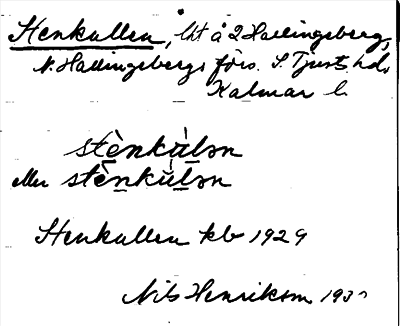 Stenkullen, lht å 2 Hallingeberg,
N. Hallingebergs förs. S. Tjusts hd,
Kalmar l.
stènkùlən
eller stènkùlən
Stenkullen kb 1929
Nils Henrikson